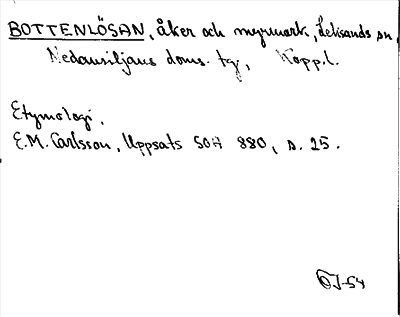 BOTTENLÖSAN, åker och myrmark, Leksands sn,
Nedansiljans doms. tg, Kopp.l.
Etymologi.
E.M. Carlsson, Uppsats SOH 880, s. 25.
ÖJ-54